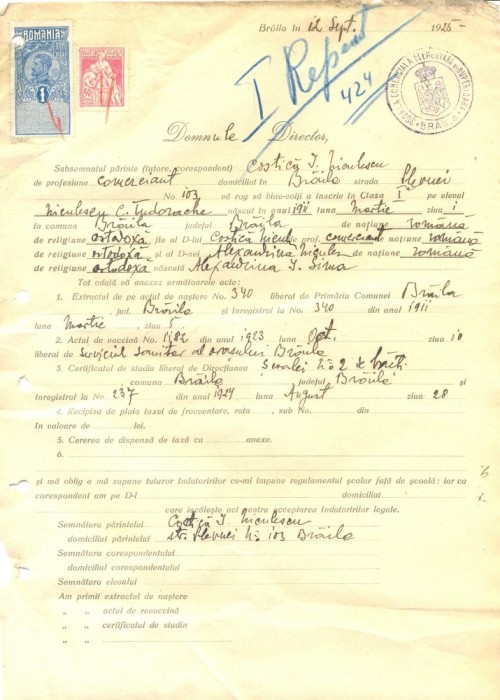 ROMANIA
1
Brăila în 12 Sept. 1925
I Repent
424
ȘCOALA COMERCIALĂ ELEMENTARĂ ȘI SUPERIOARĂ
BRĂILA
Domnule Director,
Subsemnatul părinte (tutore, corespondent) Costică I. Niculescu
de profesiune comerciant domiciliat în Brăila strada Plevnei
No. 103 vă rog să bine-voiți a înscrie în Clasa I pe elevul
Niculescu C. Tudorache născut în anul 1911 luna Martie ziua 1
în comuna Brăila județul Brăila de națiune română
de religiune ortodoxă fiu al D-lui Costică Nicules prof. comerciant de națiune română
de religiune ortodoxă și al D-nei Alexandrina Nicules de națiune română
de religiune ortodoxă născută Alexandrina I. Sima
Tot odată vă anexez următoarele acte:
1. Extractul de pe actul de naștere No. 340 liberat de Primăria Comunei Brăila
, jud. Brăila și înregistrat la No. 340 din anul 1911
luna Martie, ziua 5.
2. Actul de vaccină No. 1182 din anul 1923 luna Oct. ziua 10
liberat de Serviciul Sanitar al orașului Brăila
3. Certificatul de studiu liberat de Direcțiunea Școalei No 2 de băeți
comuna Brăila județul Brăila și
înregistrat la No. 237 din anul 1924 luna August ziua 28
4. Recipisa de plata taxei de frecventare, rata, sub No. din
în valoare de lei.
5. Cererea de dispensă de taxă cu anexe.
6.
și mă oblig a mă supune tuturor îndatoririlor ce-mi impune regulamentul școlar față de școală: iar ca
corespondent am pe D-l domiciliat
care iscălește aci pentru acceptarea îndatoririlor legale.
Semnătura părintelui Costică I. Niculescu
domiciliul părintelui str. Plevnei No 103 Brăila
Semnătura corespondentului
domiciliul corespondentului
Semnătura elevului
Am primit extractul de naștere
„ „ actul de revaccină
„ „ certificatul de studiu
„ „